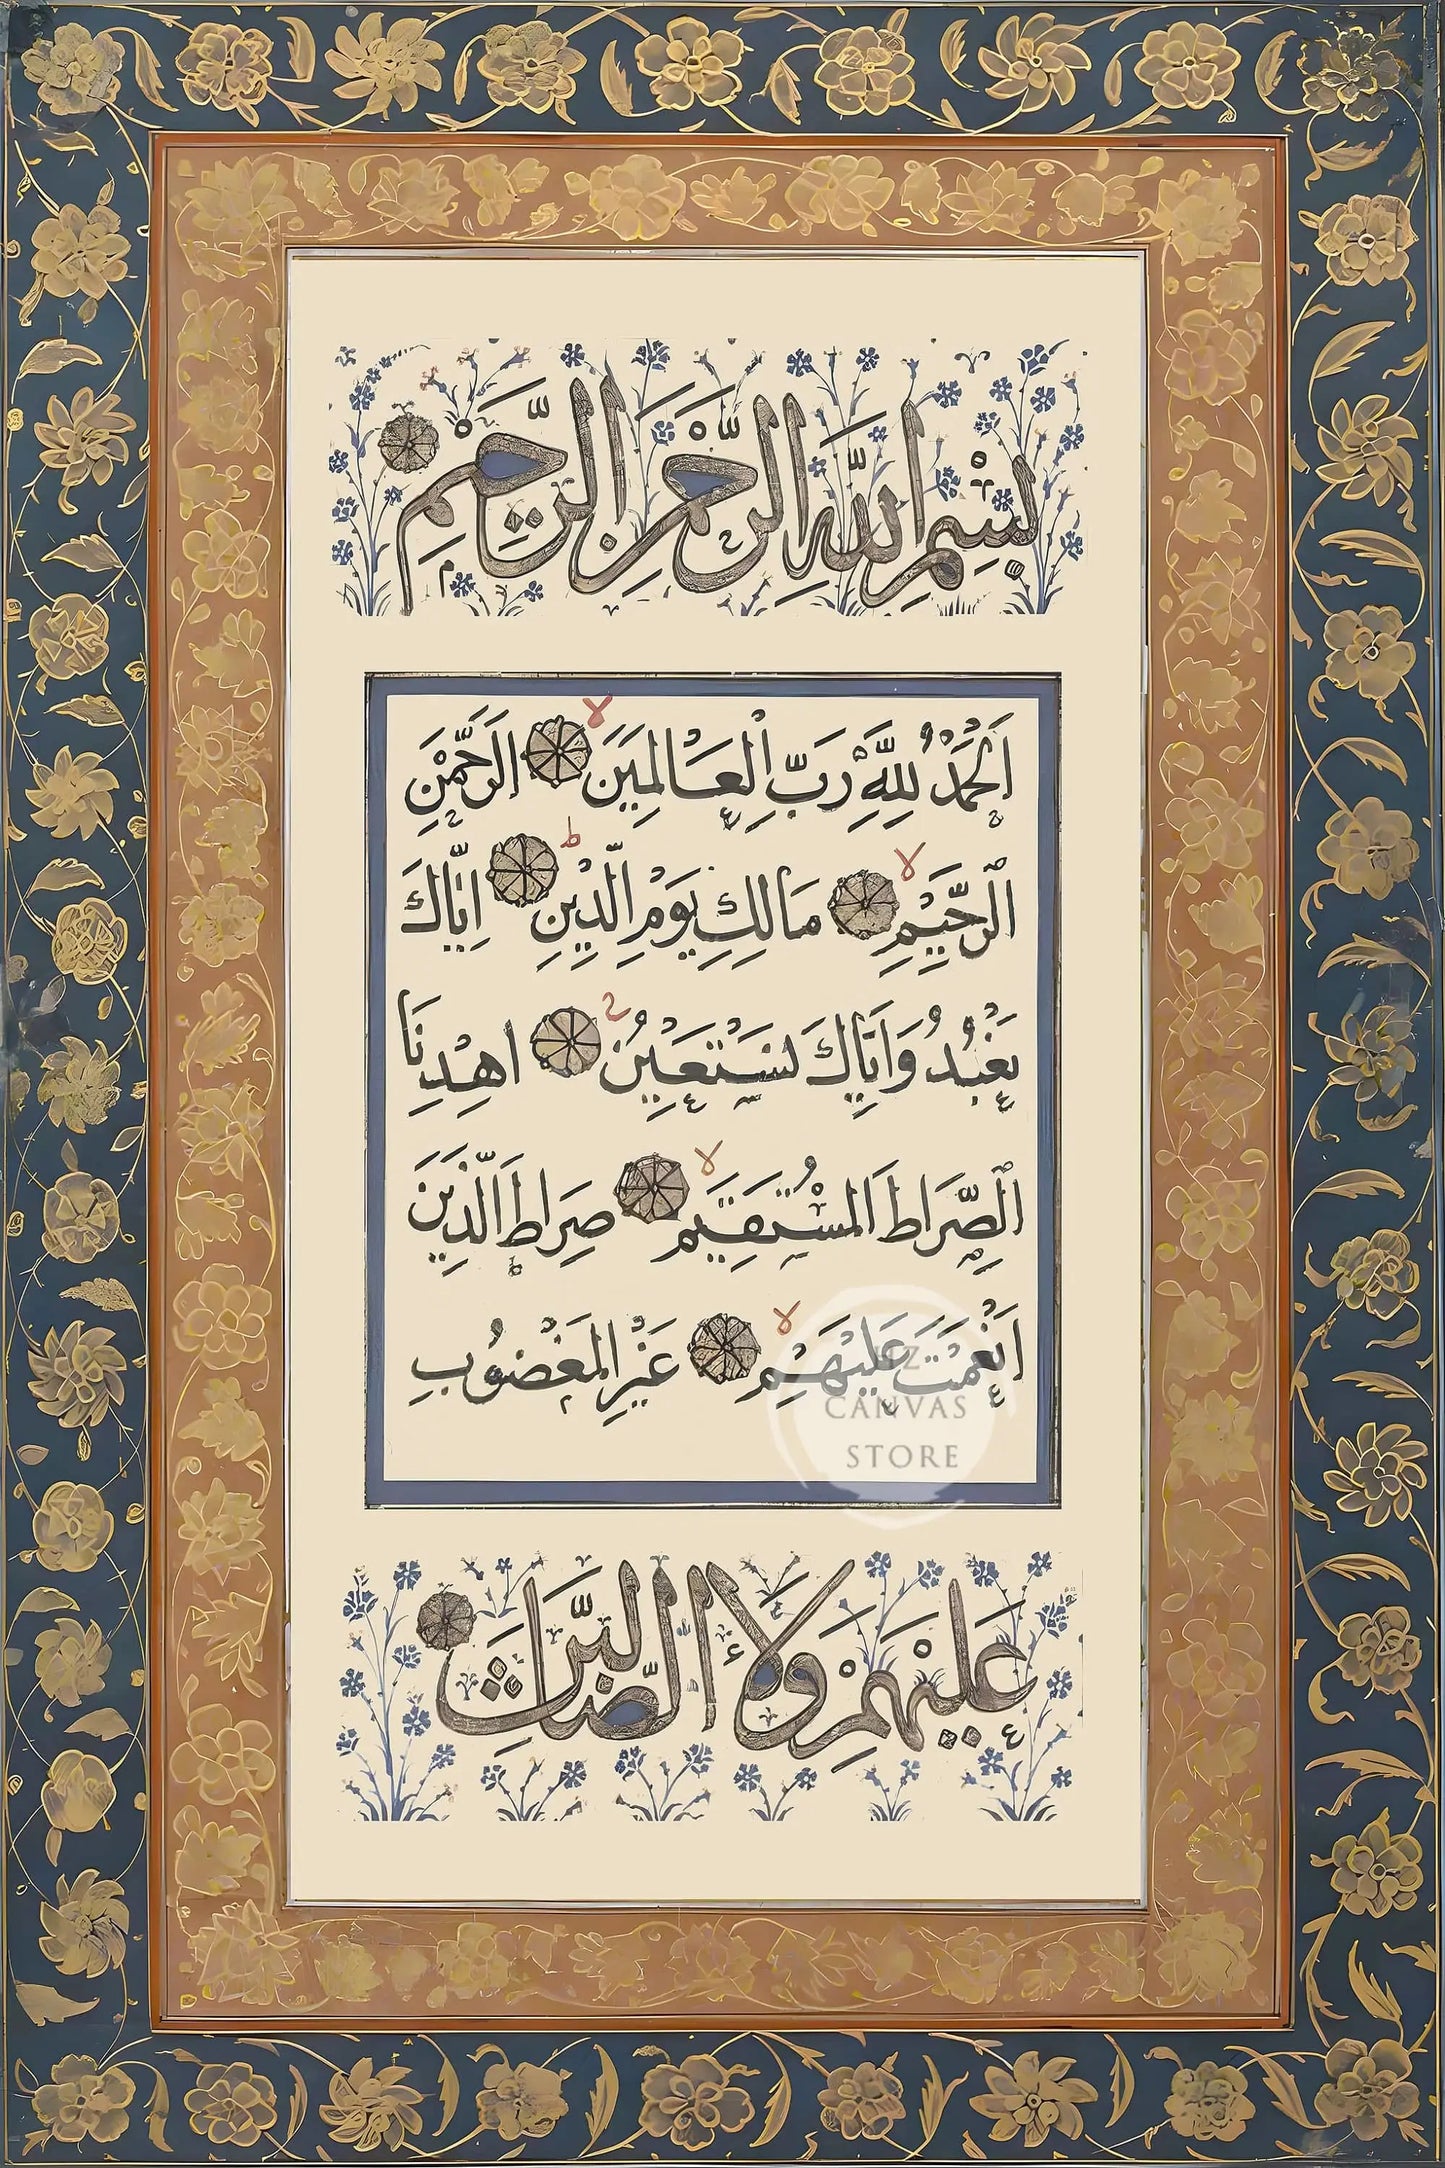 بِسْمِ اللَّهِ الرَّحْمٰنِ الرَّحِيمِ
اَلْحَمْدُ لِلَّهِ رَبِّ الْعَالَمِينَ لا الرَّحْمٰنِ
الرَّحِيمِ لا مَالِكِ يَوْمِ الدِّينِ ط اِيَّاكَ
نَعْبُدُ وَاِيَّاكَ نَسْتَعِينُ اهْدِنَا
الصِّرَاطَ الْمُسْتَقِيمَ لا صِرَاطَ الَّذِينَ
اَنْعَمْتَ عَلَيْهِمْ لا غَيْرِ الْمَغْضُوبِ
عَلَيْهِمْ وَلَا الضَّالِّينَ
CANVAS
STORE